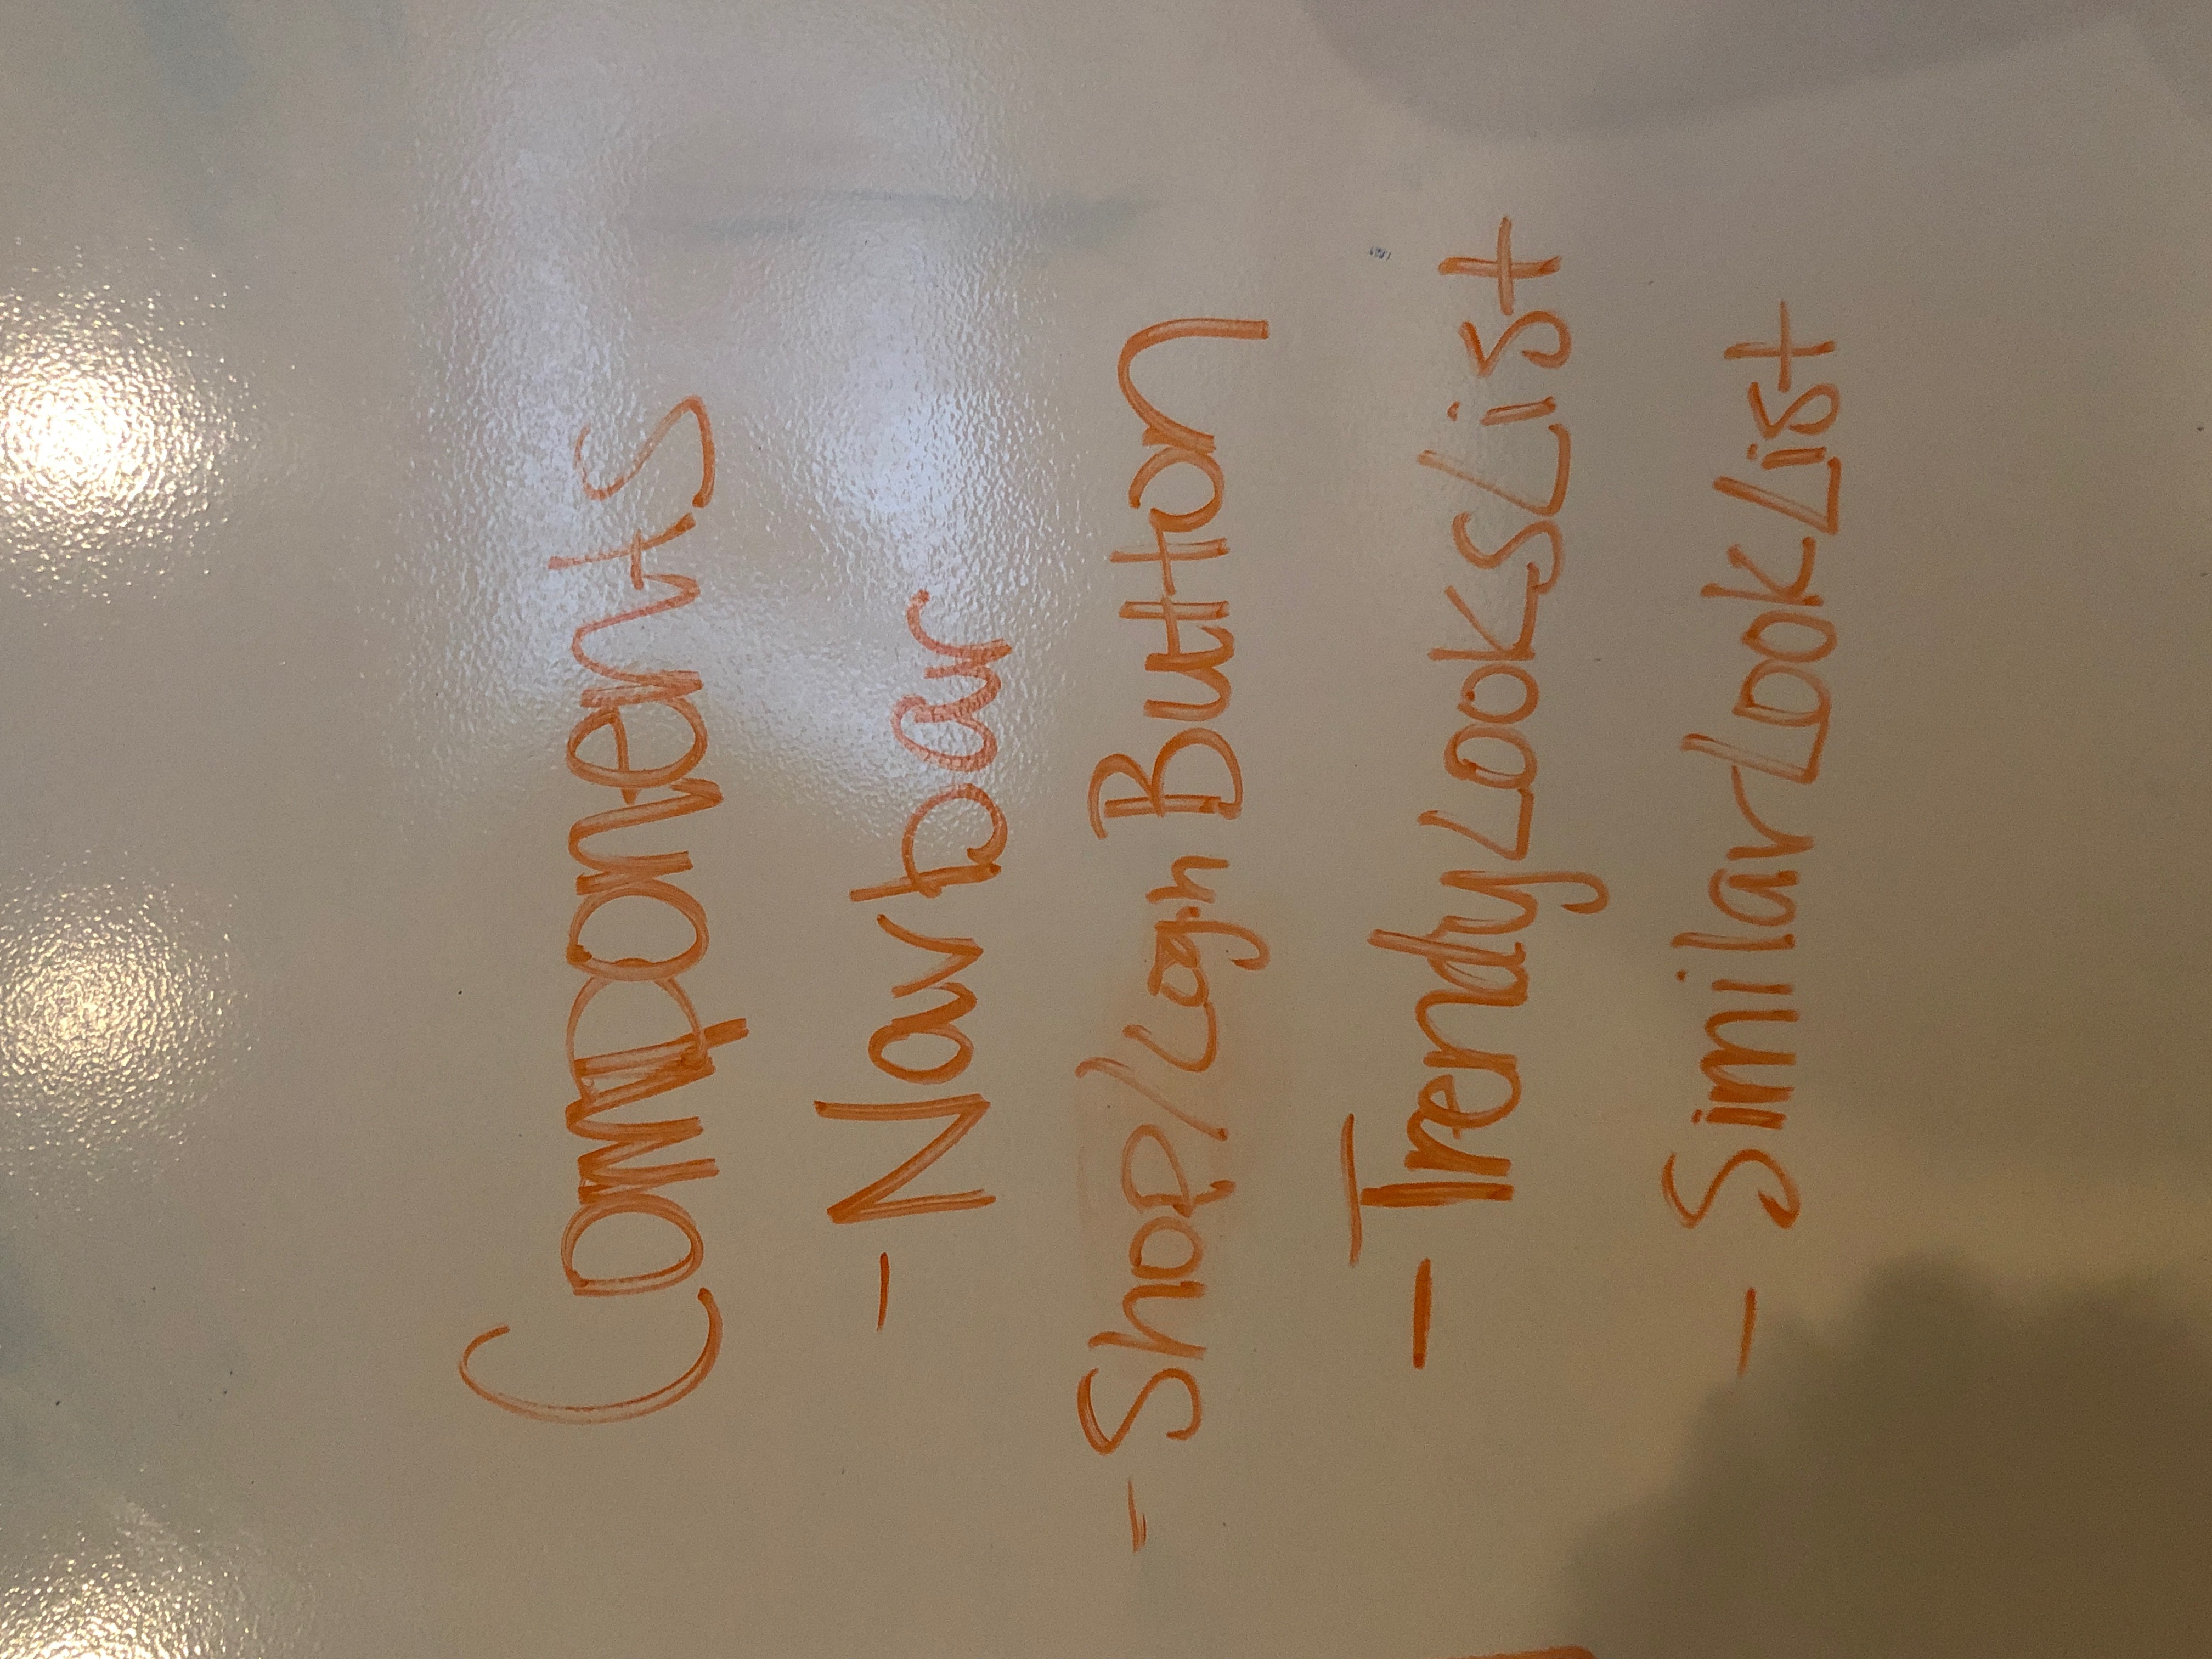 Components
- Navbar
- Shop/Login Button
- TrendyLooksList
- SimilarLookList